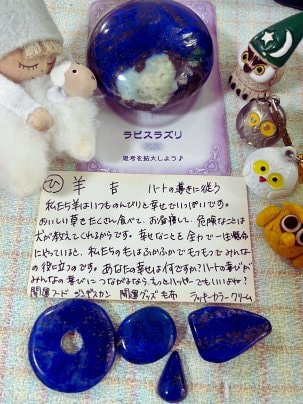 ラピスラズリ
思考を拡大しよう♪
ひ 羊 吉 ハートの導きに従う
私たち羊はいつものんびりと幸せでいっぱいです。
おいしい草をたくさん食べて、お昼寝して、危険なことは
犬が教えてくれるからです。幸せなことを全力で一生懸命
にやっていると、私たちの毛はふかふかでモフモフでみんな
の役に立つのです。あなたの幸せは何ですか?ハートの喜びが
みんなの喜びにつながるなら、もっとハッピーでもいいよね?
開運フード ジンギスカン 開運グッズ 毛布 ラッキーカラー クリーム